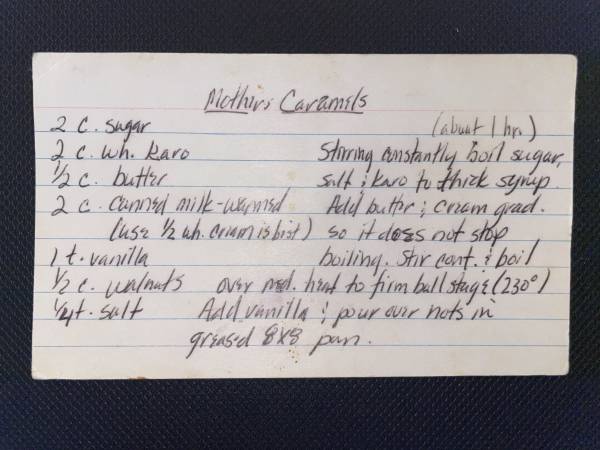 Mothers Caramels
2 c. sugar (about 1 hr.)
2 c. wh. Karo Stirring constantly boil sugar,
1/2 c. butter salt & Karo to thick syrup.
2 c. canned milk-warmed Add butter & cream grad.
(use 1/2 wh. cream is best) so it does not stop
1 t. vanilla boiling. Stir cont. & boil
1/2 c. walnuts over med. heat to firm ball stage (230°)
1/4 t. salt Add vanilla & pour over nuts in
greased 8x8 pan.